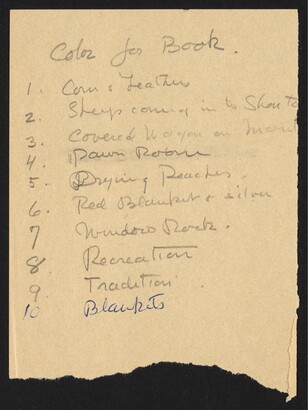 Color for Book.
1. Corn & Feathers
2. Sheep coming in to Shonto
3. Covered Wagon on
4. Pawn Room
5. Drying Peaches.
6. Red Blanket & silver
7 Window Rock.
8 Recreation
9 Tradition.
10 Blankets